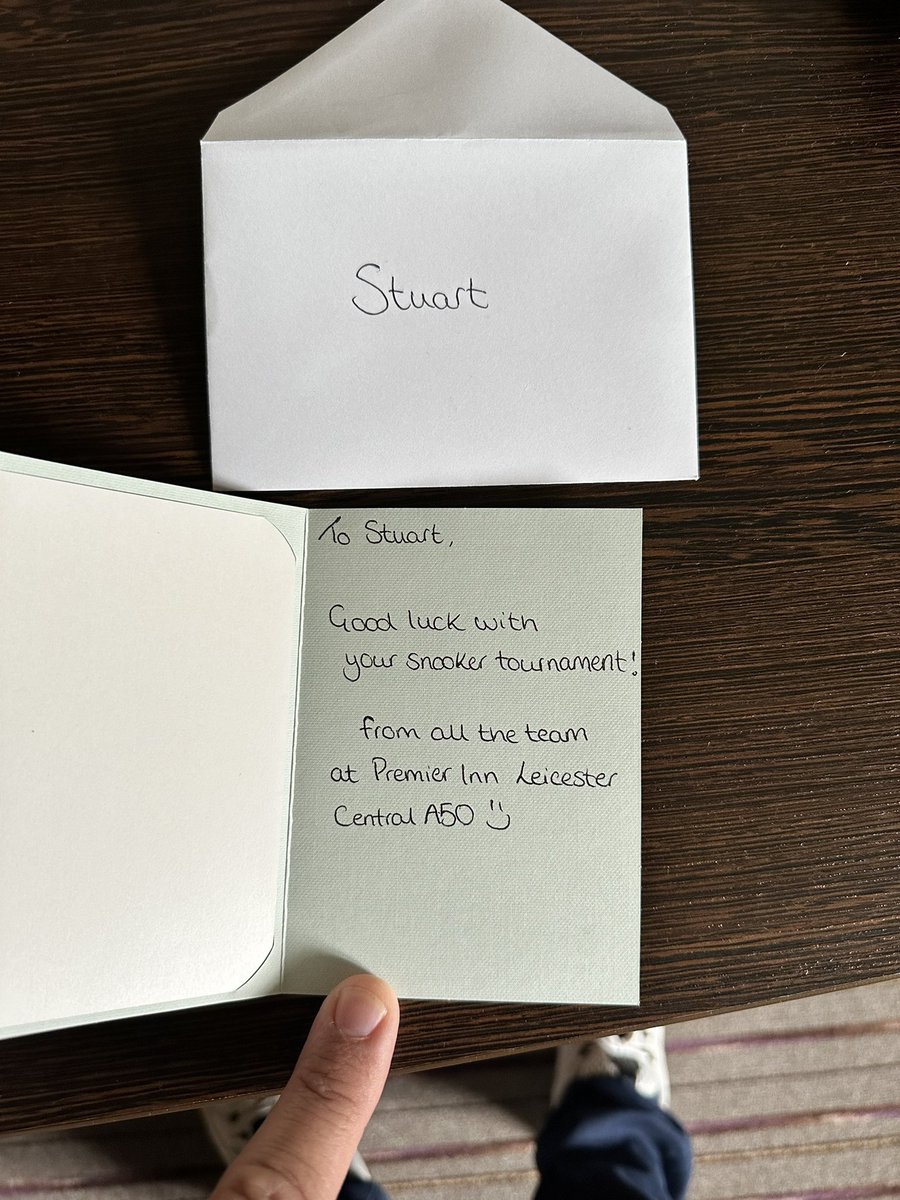 Stuart
To Stuart,
Good luck with
your snooker tournament!
from all the team
at Premier Inn Leicester
Central A50 :)